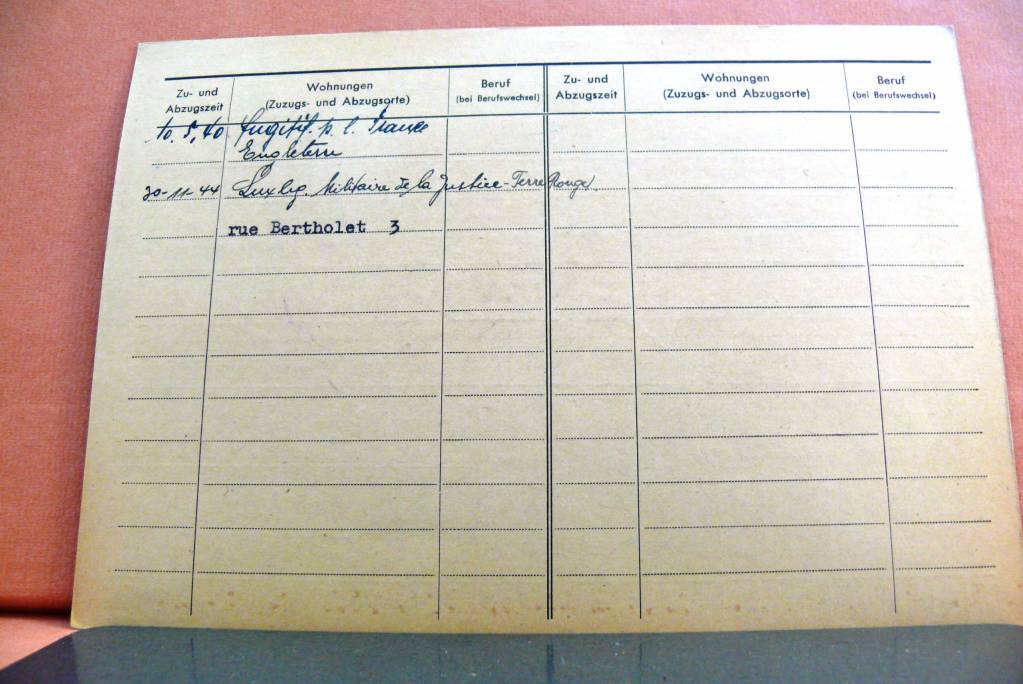 Zu- und Abzugszeit
Wohnungen
(Zuzugs- und Abzugsorte)
Beruf
(bei Berufswechsel)
Zu- und Abzugszeit
Wohnungen
(Zuzugs- und Abzugsorte)
Beruf
(bei Berufswechsel)
10. 5. 40 fugitif p. l. France
20-11-44 Luxbg. Militaire de la Justice-Terre Rouge.
rue Bertholet 3